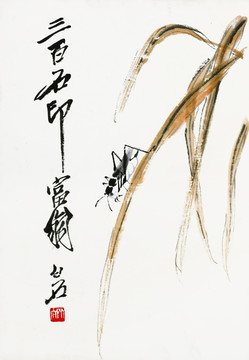 三百石印富翁
白石